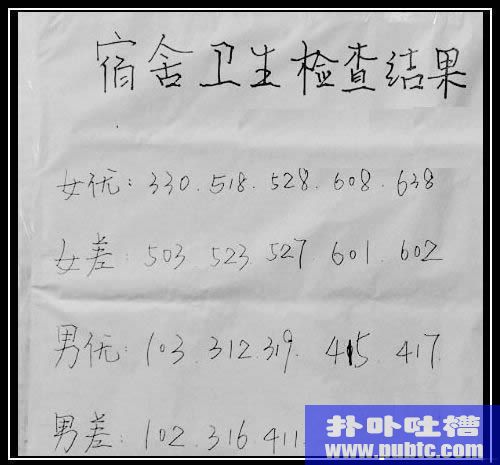 宿舍卫生检查结果
女优: 330.518.528.608.638
女差: 503.523.527.601.602
男优: 103.312.319. 415.417
男差: 102.316.411.
扑卟吐槽
www.pubtc.com